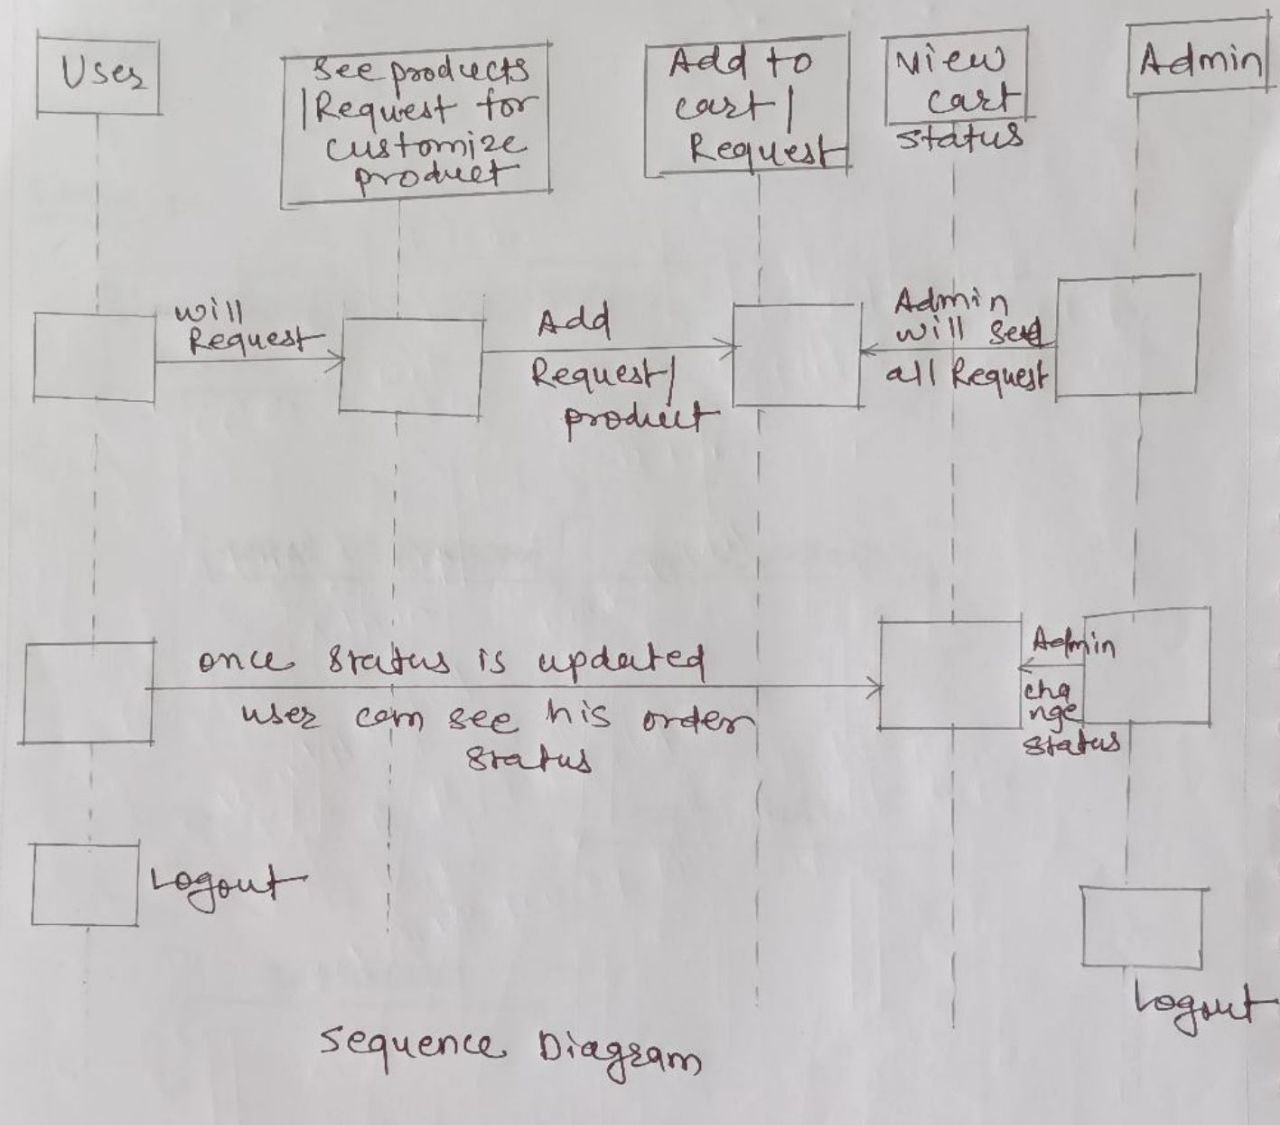 User
See products
|Request for
customize
product
Add to
cart |
Request
View
cart
status
Admin
will
Request
Add
Request|
product
Admin
will see
all Request
once status is updated
user can see his order
status
Admin
cha
nge
status
Logout
Logout
Sequence Diagram